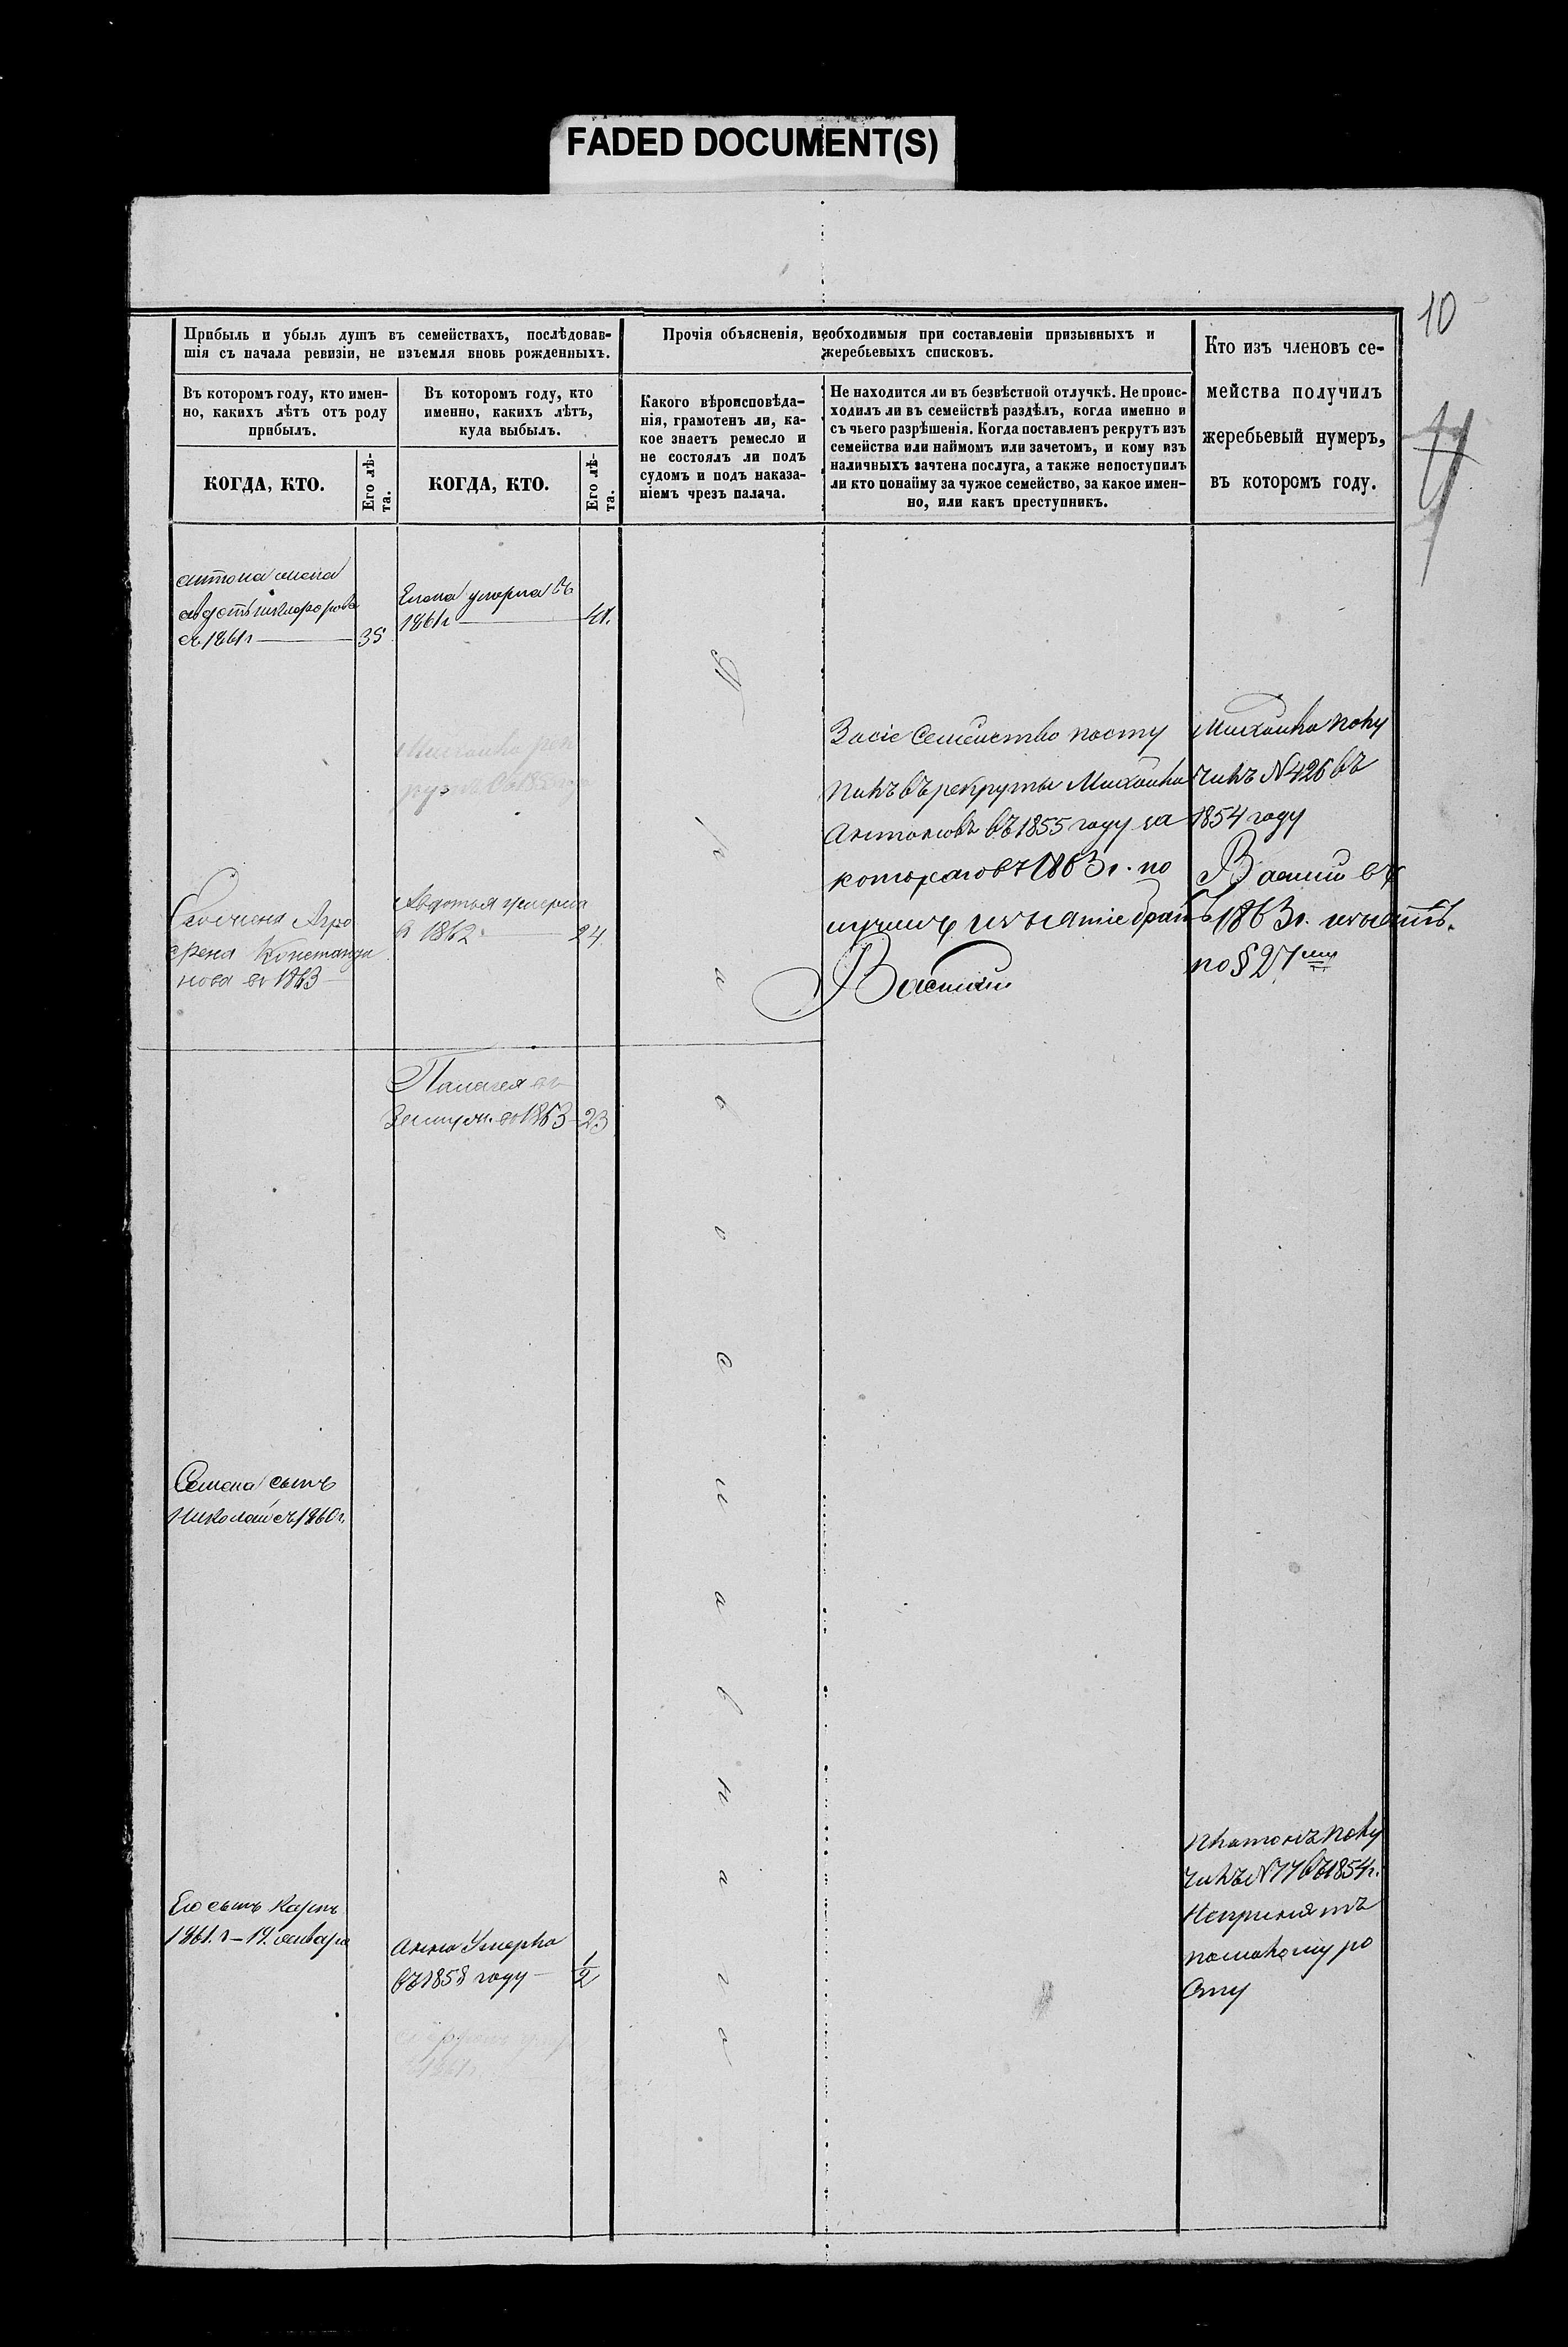 FADED DOCUMENT(S)
10
Прибыль и убыль душъ въ семействахъ, послѣдовав-
шія съ начала ревизіи, не изъемля вновь рожденныхъ.
Въ которомъ году, кто имен-
но, какихъ лѣтъ отъ роду
прибылъ.
КОГДА, КТО.
Его лѣ-
та.
Въ которомъ году, кто
именно, какихъ лѣтъ,
куда выбылъ.
КОГДА, КТО.
Его лѣ-
та.
Прочія объясненія, необходимыя при составленіи призывныхъ и
жеребьевыхъ списковъ.
Какого вѣроисповѣда-
нія, грамотенъ ли, ка-
кое знаетъ ремесло и
не состоялъ ли подъ
судомъ и подъ наказа-
ніемъ чрезъ палача.
Не находится ли въ безвѣстной отлучкѣ. Не проис-
ходилъ ли въ семействѣ раздѣлъ, когда именно и
съ чьего разрѣшенія. Когда поставленъ рекрутъ изъ
семейства или наймомъ или зачетомъ, и кому изъ
наличныхъ зачтена послуга, а также непоступилъ
ли кто понайму за чужое семейство, за какое имен-
но, или какъ преступникъ.
Кто изъ членовъ се-
мейства получилъ
жеребьевый нумеръ,
въ которомъ году.
антона жена
с 1861 г 35
Семена сынъ
Николай съ 1860 г.
Его сынъ Карпъ
1861. г – 19. января
Елена умерла въ
1861 г 41.
Михайла рек
Авдотья умерла
в 1862 24
Пелагея
в 1863 23
Анна Умерла
въ 1858 году 1/2
1861 г
Православнаго
За сіе Семейство посту
пилъ въ рекруты Михайла
Антоновъ въ 1855 году за
котораго въ 1863 г. по
лучилъ изъятіе братъ
Василій
Михайла полу
чилъ N 426 въ
1854 году
Василій въ
1863 г. изъятъ.
по § 27
Платонъ полу
чилъ N 77 въ 1854 г.
Непринятъ
помалому ро
сту